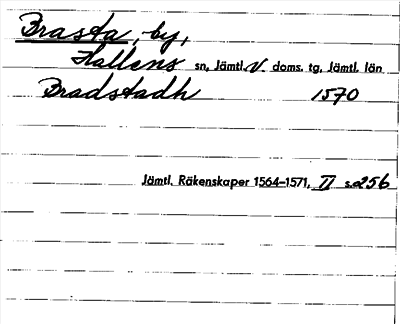 Brasta, by,
Hallens sn, Jämtl. V. doms. tg, Jämtl. län
Bradstadh 1570
Jämtl. Räkenskaper 1564–1571, II s. 256